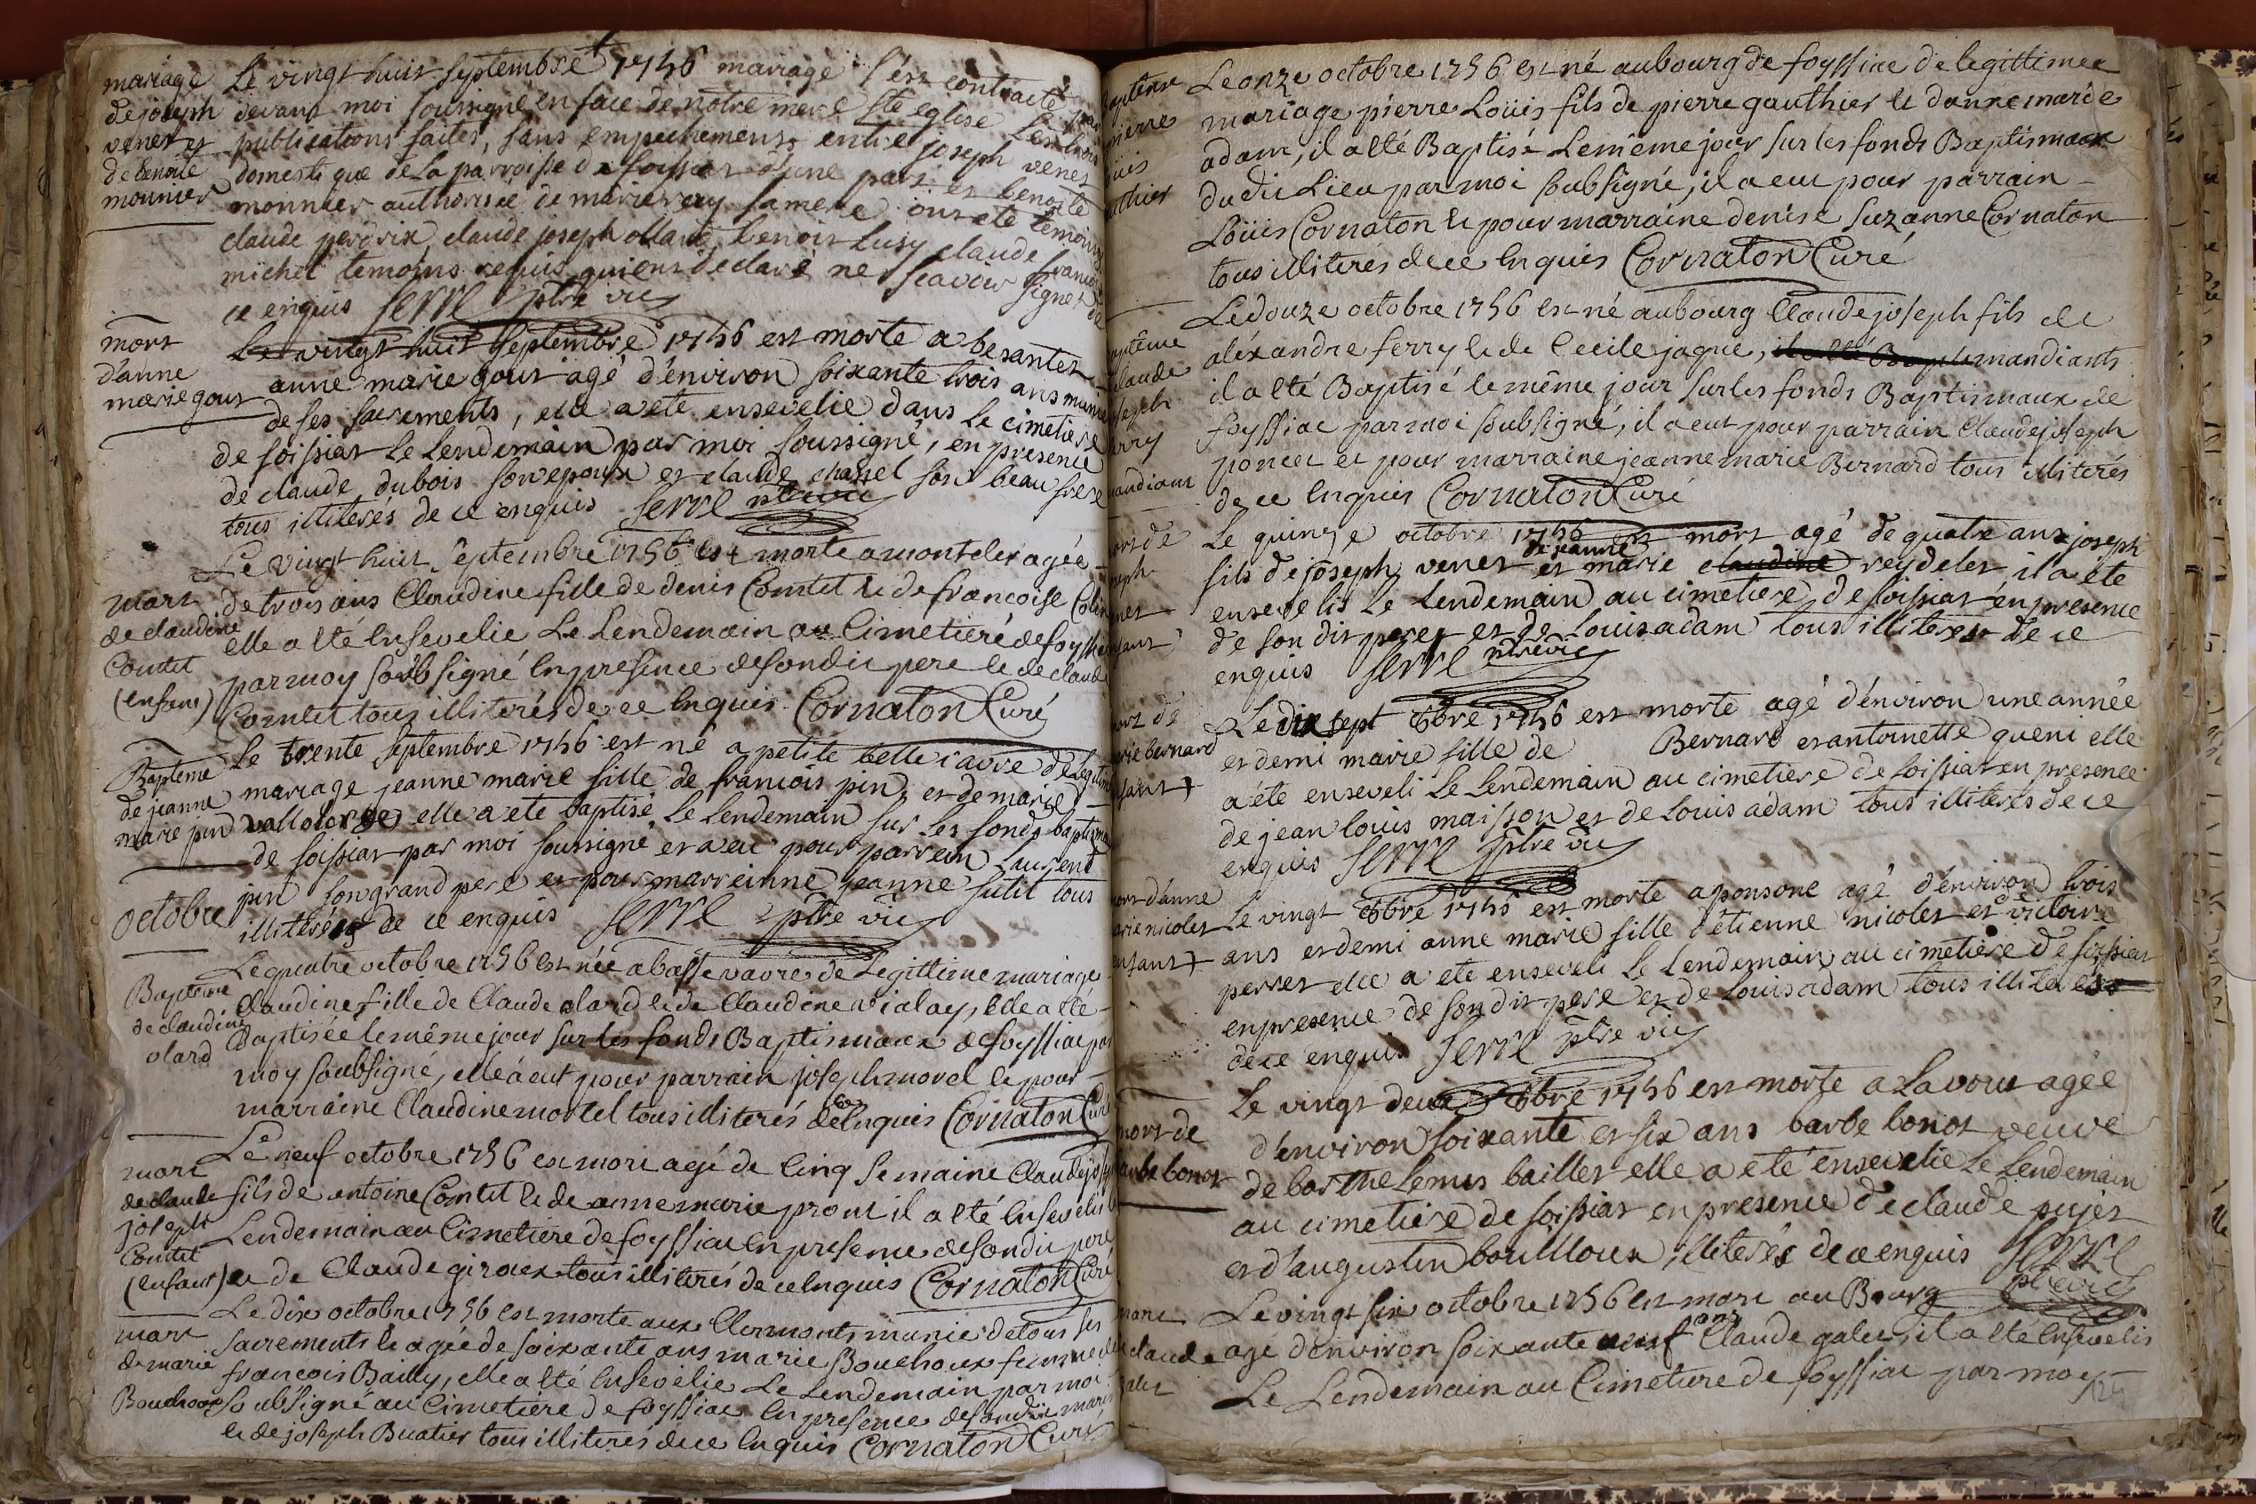 mariage
de joseph
venet et
de benoite
monnier
Le vingt huit septembre 1756 mariage s'est contracté
devant moi soussigné en face de notre mere ste eglise les trois
publications faites, sans empechement entre joseph venet
domestique de la parroisse de foissiat d'une part et benoite
monnier authorisée de marie ray sa mere ont été temoins
claude perdrix, claude joseph ollard, benoit lusy claude francois
michel temoins requis qui ont declaré ne scavoir signer de
ce enquis Serre ptre vic
mort
d'anne
marie gout
Le vingt huit septembre 1756 est morte a besantet
anne marie gout agé d'environ soixante trois ans munie
de ses sacrements, elle a été ensevelie dans le cimetiere
de foissiat le lendemain par moi soussigné, en presence
de claude dubois son epoux et claude chanel son beau frere
tous illiterés de ce enquis Serre ptre vic
mort
de claudine
Contet
(enfant)
Le vingt huit septembre 1756 est morte a montelet agée
de trois ans Claudine fille de denis Contet et de francoise
elle a été Ensevelie Le Lendemain au Cimetiere de foyssia
par moy soubsigné En presence de son dit pere et de claude
Contet tous illiterés de ce Enquis Cornaton Curé
Bapteme
de jeanne
marie pin
Le trente septembre 1756 est né a petite bellevavre de legitime
mariage jeanne marie fille de francois pin et de marie
elle a été baptisé le lendemain sur les fonds baptismaux
de foissiat par moi soussigné et a eu pour parrein laurent
pin son grand pere et pour marreinne jeanne sutit tous
illiterés de ce enquis Serre ptre vic
octobre
Bapteme
de claudine
olard
Le quatre octobre 1756 est née a basse vavre de Legittime mariage
Claudine fille de Claude olard et de Claudine vialay, Elle a été
Baptisée le même jour sur les fonds Baptismaux de foyssiac par
moy soubsigné, elle a eut pour parrain joseph morel et pour
marraine Claudine mortel tous illiterés de ce Enquis Cornaton Curé
mort
de claude
joseph
Contet
(enfant)
Le neuf octobre 1756 est mort agé de Cinq Semaine Claude joseph
fils de antoine Contet et de anne marie pront il a été Ensevelis le
Lendemain au Cimetiere de foyssiac En presence de son dit pere
et de Claude giroux tous illiterés de ce Enquis Cornaton Curé
mort
de marie
Bouchoux
Le dix octobre 1756 est morte aux Clermonts munie de tous ses
sacrements et agée de soixante ans marie Bouchoux femme de
francois Bailly, elle a été Ensevelie Le Lendemain par moi
soubsigné au Cimetiere de foyssiac En presence de son dit mary
et de joseph Buatier tous illiterés de ce Enquis Cornaton Curé
Le onze octobre 1756 est né au bourg de foyssiac de legittimee
mariage pierre Loüis fils de pierre gauthier et d'anne marie
adam, il a été Baptisé Le même jour sur les fonds Baptismaux
du dit Lieu par moi soubsigné, il a eu pour parrain
Loüis Cornaton et pour marraine denise Suzanne Cornaton
tous illiteres de ce Enquis Cornaton Curé
Le douze octobre 1756 est né au bourg Claude joseph fils de
alexandre ferry et de Cecile jaque, mandiants
il a été Baptisé le même jour sur les fonds Baptismaux de
foyssiac par moi soubsigné, il a eut pour parrain Claude joseph
poncet et pour marraine jeanne marie Bernard tous illiterés
de ce Enquis Cornaton Curé
Le quinze octobre 1756 est mort agé de quatre ans joseph
fils de joseph venet et de jeanne marie claudine reydelet il a été
ensevelis le lendemain au cimetiere de foissiat en presence
de son dit pere et de louis adam tous illiteres de ce
enquis Serre ptre vic
marie bernard
Le dix sept 8bre 1756 est morte agé d'environ une année
et demi marie fille de Bernard et antoinette queni elle
a été enseveli le lendemain au cimetiere de foissiat en presence
de jean louis maisson et de louis adam tous illiteres de ce
enquis Serre ptre vic
mort d'anne
marie nicolet
enfant
Le vingt 8bre 1756 est morte a ponsone agé d'environ trois
ans et demi anne marie fille d'etienne nicolet et victoire
perret elle a été enseveli le lendemain au cimetiere de foissiat
en presence de son dit pere et de louis adam tous illiterés
de ce enquis Serre ptre vic
mort de
barbe bonot
Le vingt deux 8bre 1756 est morte a Lavour agée
d'environ soixante et six ans barbe bonot veuve
de barthelemis baillet elle a été ensevelie le lendemain
au cimetiere de foissiat en presence de claude pujet
et d'augustin bouilloux, illiterés de ce enquis Serre
ptre vic
mort
de claude
galet
Le vingt six octobre 1756 est mort au Bourg
age d'environ soixante neuf ans Claude galet, il a été Ensevelis
Le Lendemain au Cimetiere de foyssiac par moy